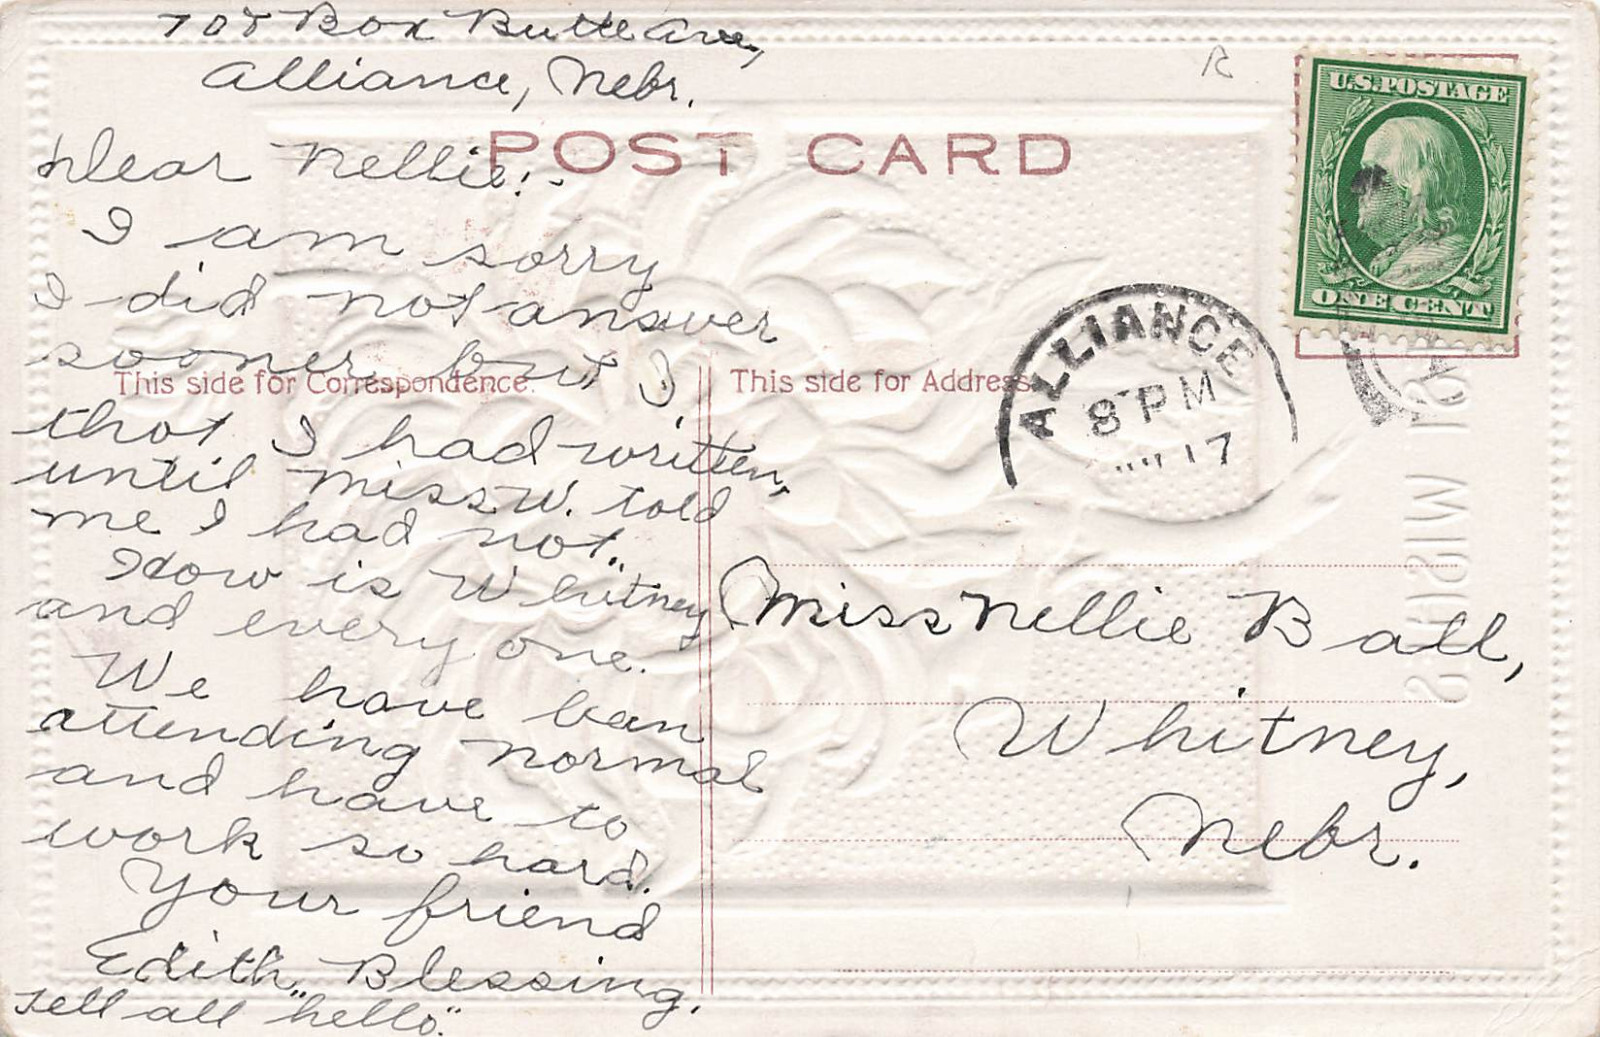 708 Box Butte Ave,
Alliance, Nebr.
POST CARD
U.S. POSTAGE
ONE CENT
Dear Nellie:-
I am sorry
I did not answer
sooner but I
that I had written,
until Miss W. told
me I had not.
How is Whitney
and every one.
We have been
attending normal
and have to
work so hard.
Your friend
Edith Blessing.
Tell all "hello."
This side for Correspondence.
This side for Address
ALLIANCE
8 PM
17
Miss Nellie Ball,
Whitney,
Nebr.